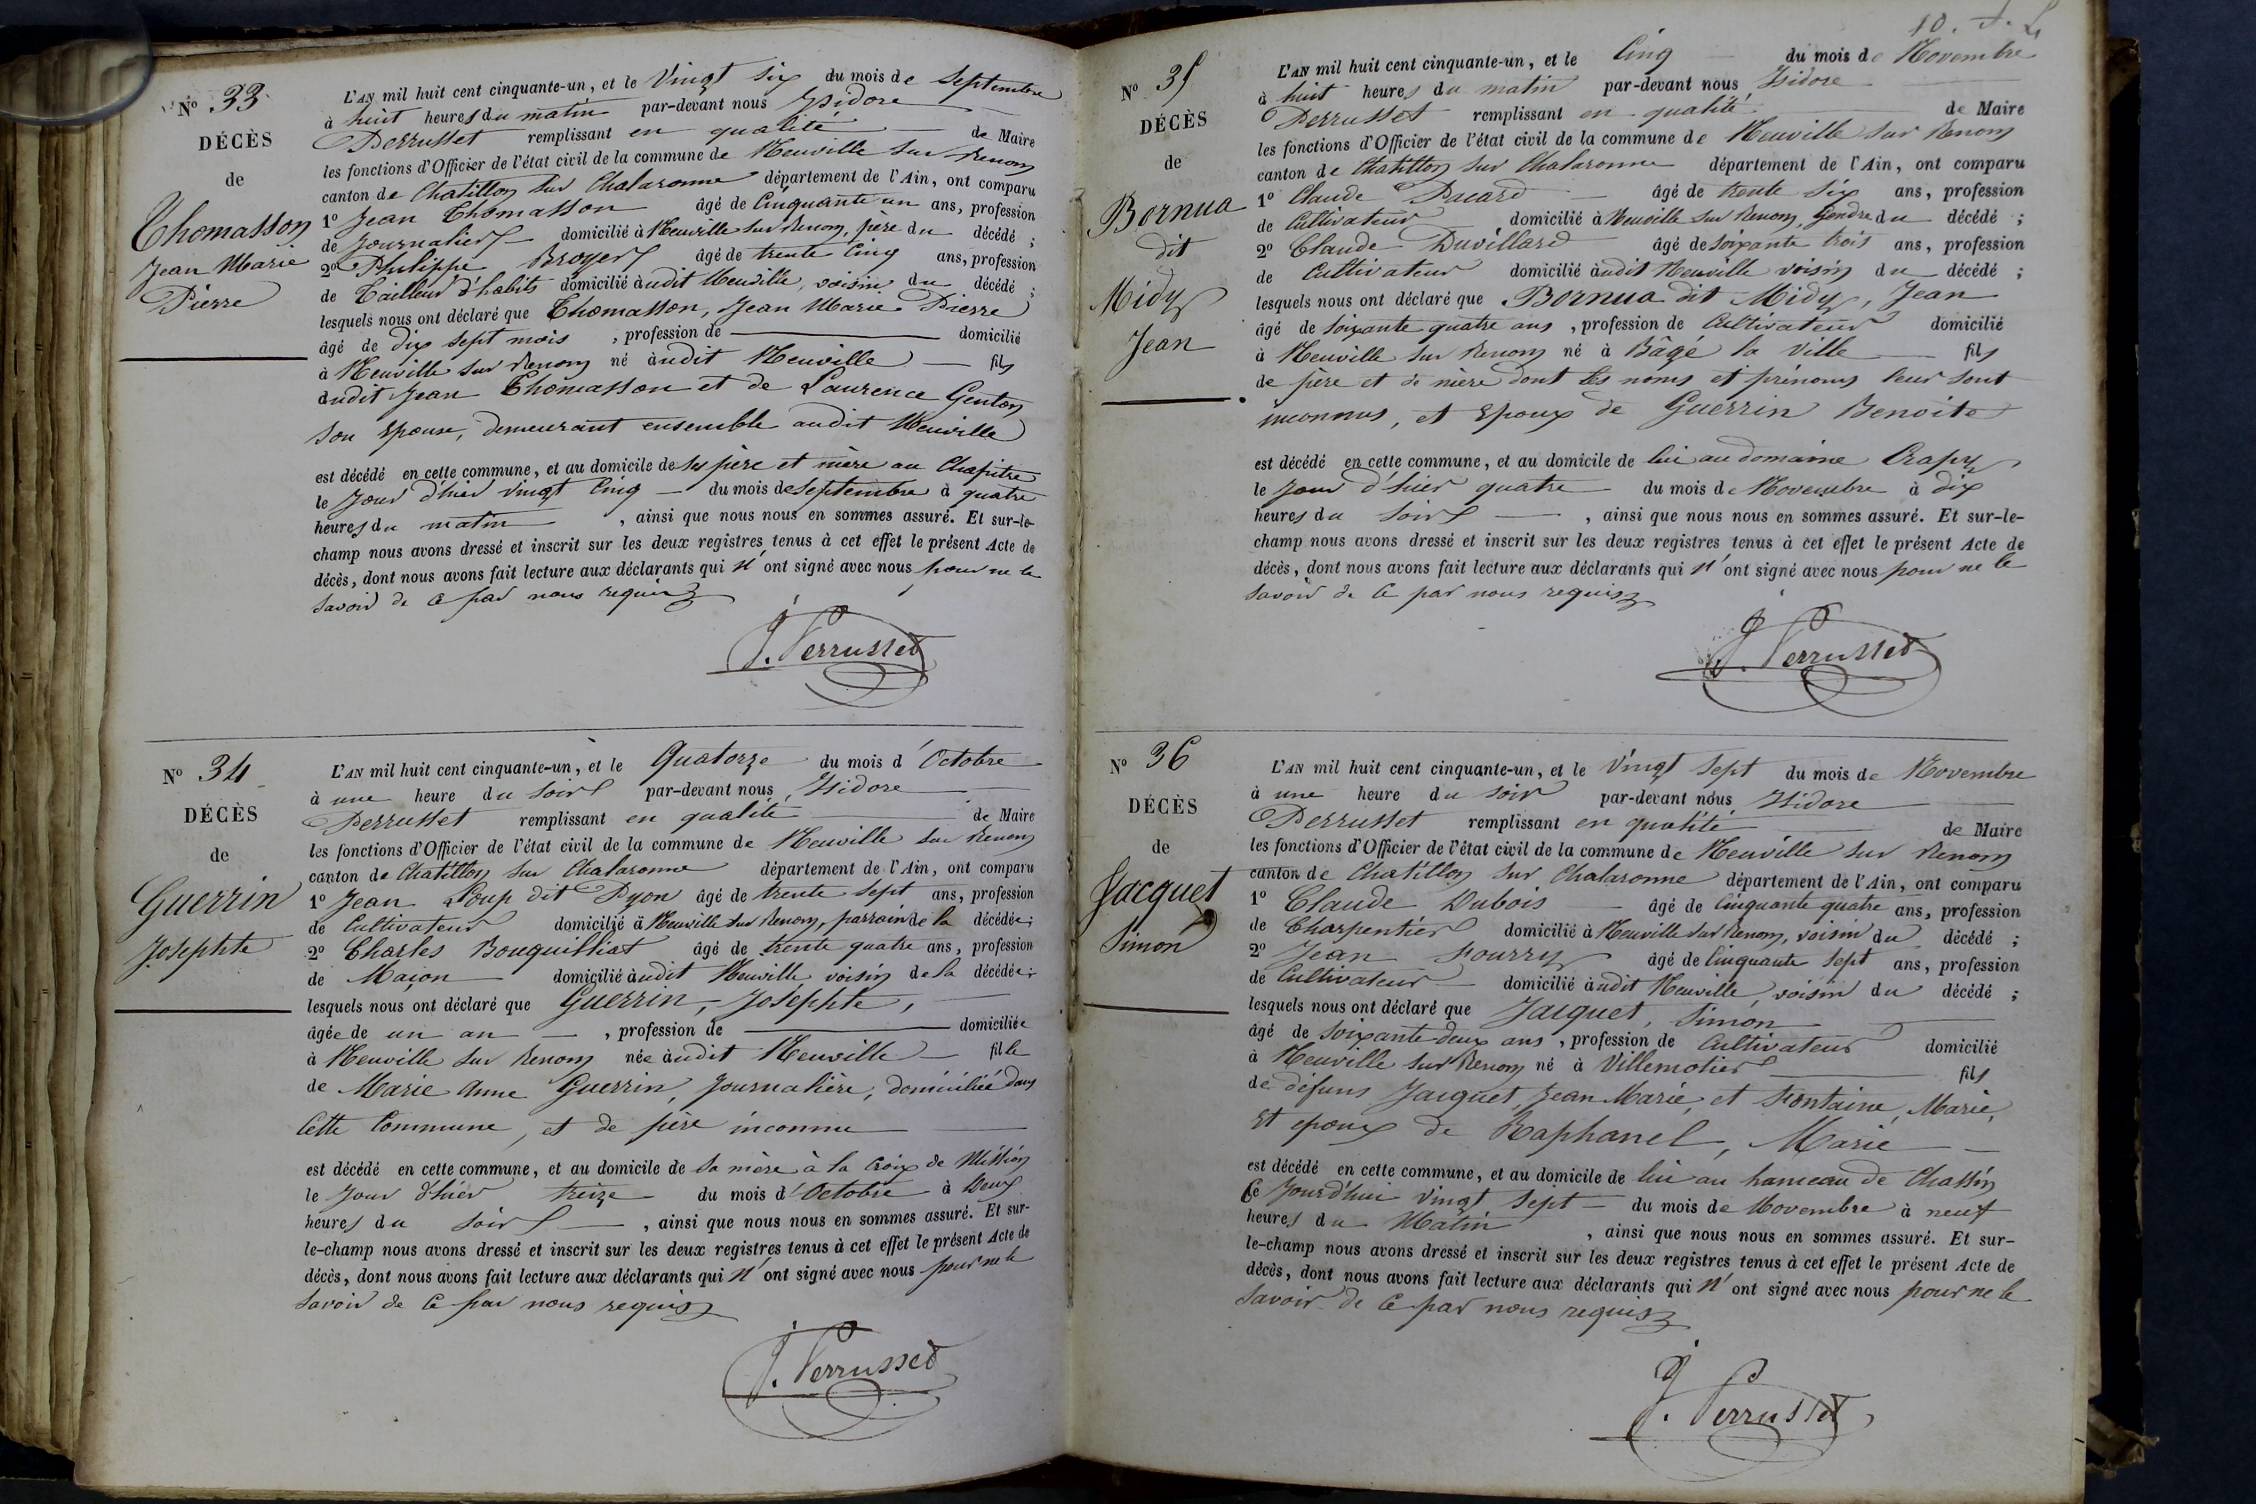 Nº 33
DÉCÈS
de
Thomasson
Jean Marie
Pierre
L'AN mil huit cent cinquante-un, et le Vingt six du mois de Septembre
à huit heures du matin par-devant nous Isidore
Perrusset remplissant en qualité de Maire
les fonctions d'Officier de l'état civil de la commune de Neuville sur Renom
canton de Chatillon sur Chalaronne département de l'Ain, ont comparu
1º Jean Thomasson âgé de Cinquante un ans, profession
de Journalier domicilié à Neuville sur Renom, père du décédé ;
2º Philippe Broyer âgé de trente Cinq ans, profession
de Tailleur d'habits domicilié audit Neuville, voisin du décédé ;
lesquels nous ont déclaré que Thomasson, Jean Marie Pierre
âgé de dix sept mois , profession de domicilié
à Neuville sur Renom né audit Neuville fils
dudit Jean Thomasson et de Laurence Genton
son Epouse, demeurant ensemble audit Neuville
est décédé en cette commune, et au domicile de ses père et mère au Chapitre
le Jour d'hier vingt Cinq du mois de Septembre à quatre
heures du matin , ainsi que nous nous en sommes assuré. Et sur-le-
champ nous avons dressé et inscrit sur les deux registres tenus à cet effet le présent Acte de
décès, dont nous avons fait lecture aux déclarants qui n' ont signé avec nous pour ne le
savoir de ce par nous requis
J. Perrusset
Nº 34
DÉCÈS
de
Guerrin
Josephte
L'AN mil huit cent cinquante-un, et le Quatorze du mois d'Octobre
à une heure du soir par-devant nous Isidore
Perrusset remplissant en qualité de Maire
les fonctions d'Officier de l'état civil de la commune de Neuville sur Renom
canton de Chatillon sur Chalaronne département de l'Ain, ont comparu
1º Jean Loup dit Pyon âgé de trente sept ans, profession
de Cultivateur domicilié à Neuville sur Renom, parrain de la décédée ;
2º Charles Bouquilliat âgé de trente quatre ans, profession
de Maçon domicilié audit Neuville, voisin de la décédée ;
lesquels nous ont déclaré que Guerrin, Josephte,
âgée de un an , profession de domiciliée
à Neuville sur Renom née audit Neuville fille
de Marie Anne Guerrin, Journalière, domiciliée dans
Cette Commune, et de père inconnu
est décédé en cette commune, et au domicile de sa mère à la Croix de Mission
le Jour d'hier treize du mois d'Octobre à Deux
heures du soir , ainsi que nous nous en sommes assuré. Et sur-
le-champ nous avons dressé et inscrit sur les deux registres tenus à cet effet le présent Acte de
décès, dont nous avons fait lecture aux déclarants qui n' ont signé avec nous pour ne le
savoir de ce par nous requis
J. Perrusset
10.
Nº 35
DÉCÈS
de
Bornua
dit
Midy
Jean
L'AN mil huit cent cinquante-un, et le Cinq du mois de Novembre
à huit heures du matin par-devant nous Isidore
Perrusset remplissant en qualité de Maire
les fonctions d'Officier de l'état civil de la commune de Neuville sur Renom
canton de Chatillon sur Chalaronne département de l'Ain, ont comparu
1º Claude Picard âgé de trente six ans, profession
de Cultivateur domicilié à Neuville sur Renom, Gendre du décédé ;
2º Claude Duvillard âgé de soixante trois ans, profession
de Cultivateur domicilié audit Neuville voisin du décédé ;
lesquels nous ont déclaré que Bornua dit Midy, Jean
âgé de soixante quatre ans , profession de Cultivateur domicilié
à Neuville sur Renom né à Bâgé la Ville fils
de père et de mère dont les noms et prénoms leur sont
inconnus, et Epoux de Guerrin Benoite
est décédé en cette commune, et au domicile de lui au domaine Crapy
le Jour d'hier quatre du mois de Novembre à dix
heures du soir , ainsi que nous nous en sommes assuré. Et sur-le-
champ nous avons dressé et inscrit sur les deux registres tenus à cet effet le présent Acte de
décès, dont nous avons fait lecture aux déclarants qui n' ont signé avec nous pour ne le
savoir de ce par nous requis
J. Perrusset
Nº 36
DÉCÈS
de
Jacquet
Simon
L'AN mil huit cent cinquante-un, et le Vingt Sept du mois de Novembre
à une heure du soir par-devant nous Isidore
Perrusset remplissant en qualité de Maire
les fonctions d'Officier de l'état civil de la commune de Neuville sur Renom
canton de Chatillon sur Chalaronne département de l'Ain, ont comparu
1º Claude Dubois âgé de Cinquante quatre ans, profession
de Charpentier domicilié à Neuville sur Renom, voisin du décédé ;
2º Jean Fourry âgé de Cinquante Sept ans, profession
de Cultivateur domicilié audit Neuville, voisin du décédé ;
lesquels nous ont déclaré que Jacquet, Simon
âgé de soixante deux ans , profession de Cultivateur domicilié
à Neuville sur Renom né à Villemotier fils
de défuns Jacquet, Jean Marie, et Fontaine, Marie,
Et epoux de Raphanel, Marie
est décédé en cette commune, et au domicile de lui au hameau de Chassin
Ce Jourd'hui vingt sept du mois de Novembre à neuf
heures du Matin , ainsi que nous nous en sommes assuré. Et sur-
le-champ nous avons dressé et inscrit sur les deux registres tenus à cet effet le présent Acte de
décès, dont nous avons fait lecture aux déclarants qui n' ont signé avec nous pour ne le
savoir de ce par nous requis
J. Perrusset